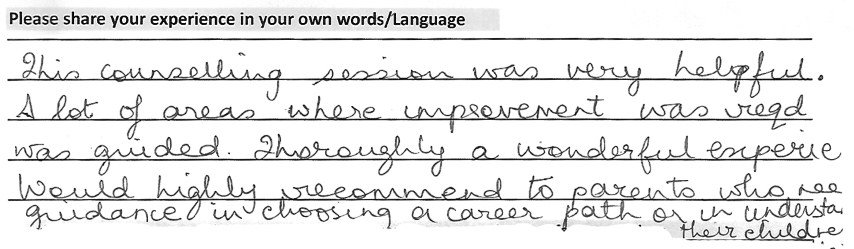 Please share your experience in your own words/Language
This counselling session was very helpful.
A lot of areas where improvement was reqd
was guided. Thoroughly a wonderful experie
Would highly recommend to parents who nee
guidance in choosing a career path or in understa
their childre